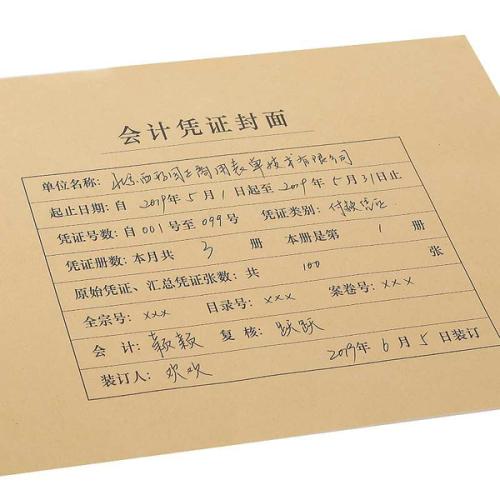 会计凭证封面
单位名称: 北京西玛商用表单技术有限公司
起止日期: 自 2019年 5 月 1 日起至 2019 年 5 月 31 日止
凭证号数: 自 001 号至 099 号 凭证类别: 付款凭证
凭证册数: 本月共 3 册 本册是第 1 册
原始凭证、汇总凭证张数: 共 100 张
全宗号: xxx 目录号: xxx 案卷号: xxx
会 计: 颖颖 复 核: 跃跃
装订人: 欢欢 2019年 6 月 5 日装订